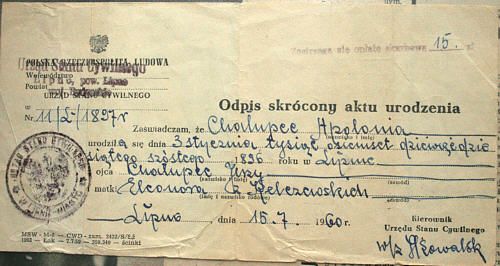 POLSKA RZECZPOSPOLITA LUDOWA
Urząd Stanu Cywilnego
Województwo
Lipno, pow. Lipno
Powiat
URZĄD STANU CYWILNEGO
Nr 11/L-/1897r
15.- zł
Odpis skrócony aktu urodzenia
Zaświadczam, że Chalupec Apolonia
(nazwisko i imię)
urodziła się dnia 3 stycznia tysiąc osiemset dziewięćdzie
siątego szóstego 1896 roku w Lipnie
ojca Chalupec
(zawód)
matki Eleonora z Kiełczewskich
(imię i nazwisko rodowe) (zawód)
Lipno, dnia 15.7 1960r.
Kierownik
Urzędu Stanu Cywilnego
w/z Kowalek
URZĄD STANU CYWILNEGO
MSW - CWD - zam.
1952 - ścinki